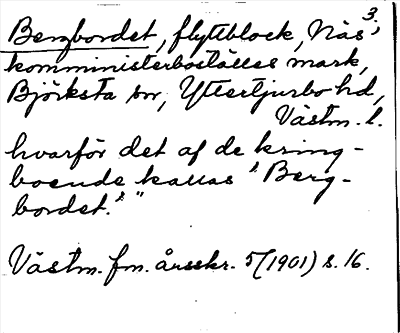 3.
Bergbordet, flyttblock, Näs'
komministerboställes mark,
Björksta sn, Yttertjurbo hd,
Västm. l.
hvarför det af de kring-
boende kallas "Berg-
bordet." "
Västm. fm. årsskr. 5 (1901) s. 16.